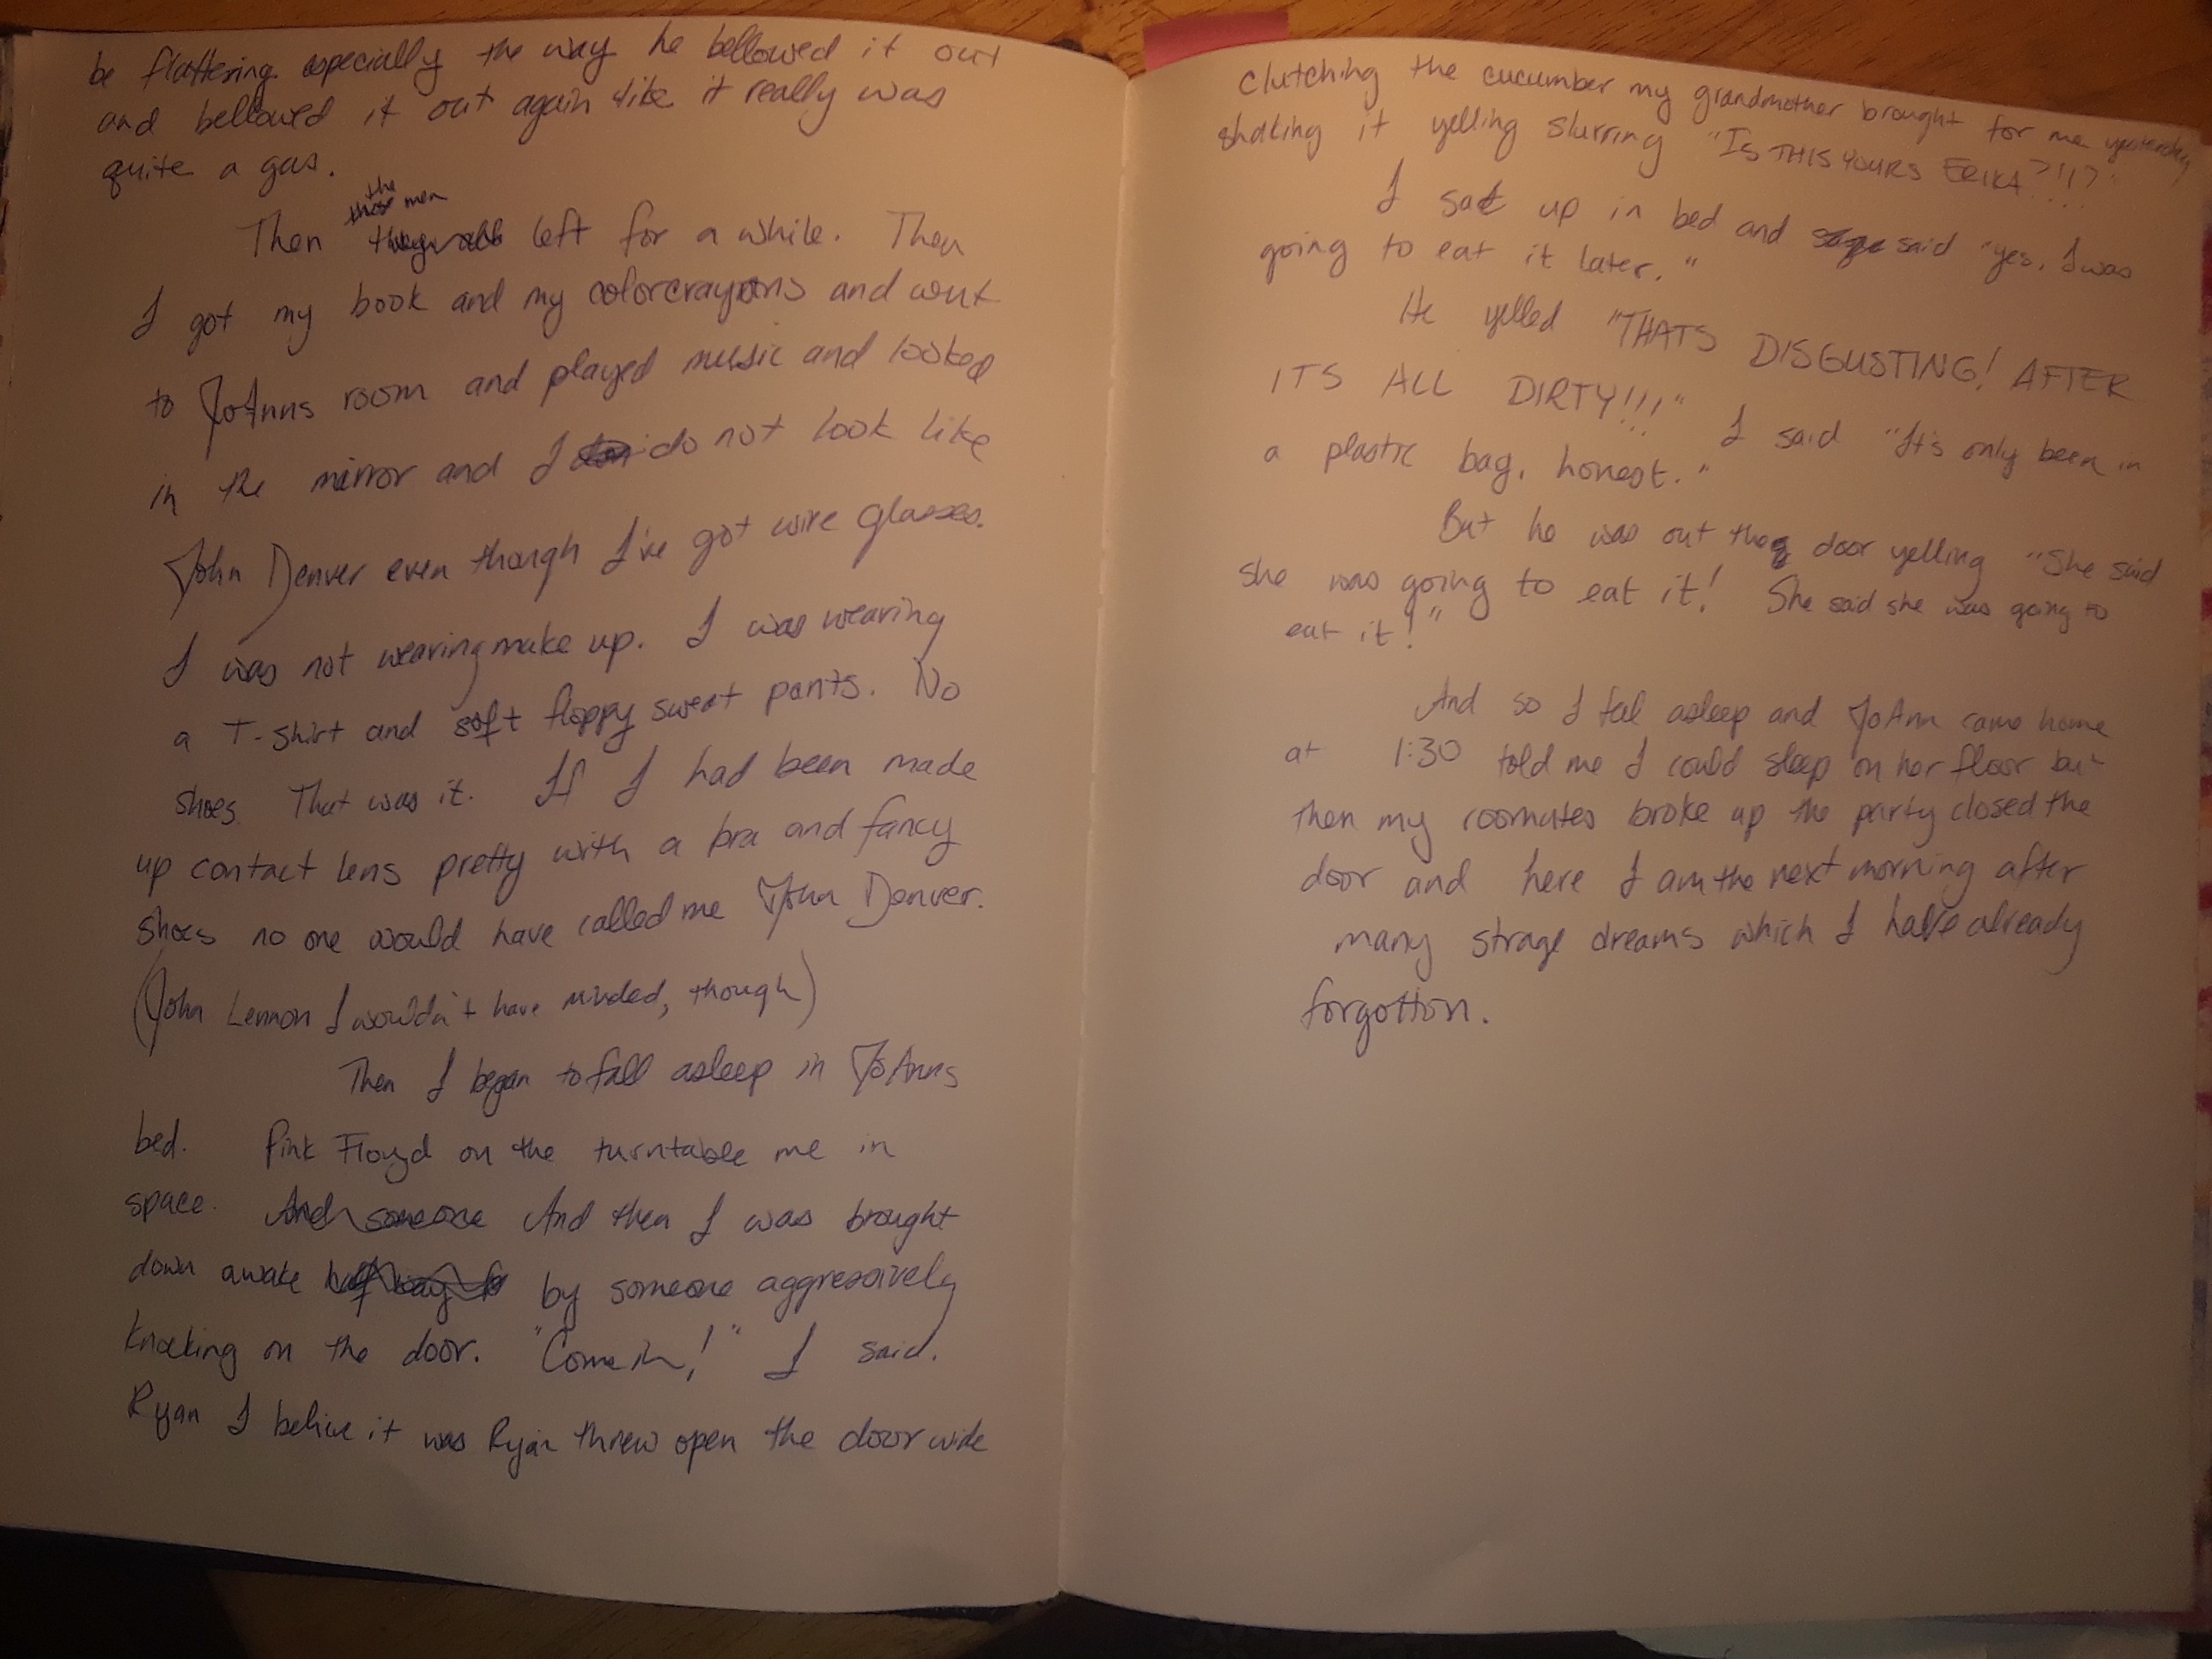 be flattering especially the way he bellowed it out
and bellowed it out again like it really was
quite a gas.
the
those men
Then they all left for a while. Then
I got my book and my colorcrayons and went
to JoAnns room and played music and looked
in the mirror and I do not look like
John Denver even though I've got wire glasses.
I was not wearing make up. I was wearing
a T-shirt and soft floppy sweat pants. No
shoes. That was it. If I had been made
up contact lens pretty with a bra and fancy
shoes no one would have called me John Denver.
(John Lennon I wouldn't have minded, though)
Then I began to fall asleep in JoAnns
bed. Pink Floyd on the turntable me in
space. And someone And then I was brought
down awake half way by someone aggressively
knocking on the door. "Come in!" I said.
Ryan I belive it was Ryan threw open the door wide
clutching the cucumber my grandmother brought for me yesterday
shaking it yelling slurring "IS THIS YOURS ERIKA?!!?"
I sat up in bed and said "yes, I was
going to eat it later."
He yelled "THATS DISGUSTING! AFTER
ITS ALL DIRTY!!!" I said "It's only been in
a plastic bag, honest."
But he was out the door yelling "She said
she was going to eat it! She said she was going to
eat it!"
And so I fell asleep and JoAnn came home
at 1:30 told me I could sleep on her floor but
then my roomates broke up the party closed the
door and here I am the next morning after
many strage dreams which I have already
forgotton.